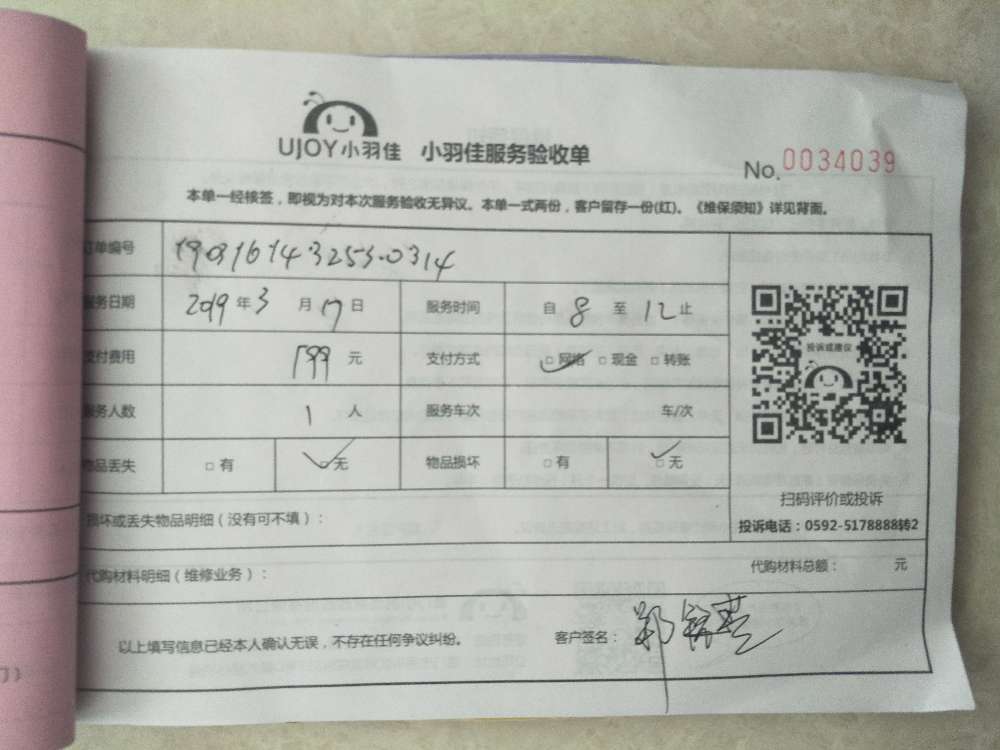 UJOY小羽佳 小羽佳服务验收单
No.0034039
本单一经接签，即视为对本次服务验收无异议。本单一式两份，客户留存一份(红)。《维保须知》详见背面。
订单编号 190316143253.0314
服务日期 2019年3月17日 服务时间 自8至12止
支付费用 199元 支付方式 □网络 □现金 □转账
服务人数 1人 服务车次 车/次
物品丢失 □有 □无 物品损坏 □有 □无
投诉或建议
扫码评价或投诉
投诉电话：0592-5178888转2
损坏或丢失物品明细（没有可不填）：
代购材料明细（维修业务）： 代购材料总额： 元
以上填写信息已经本人确认无误，不存在任何争议纠纷。 客户签名：郑